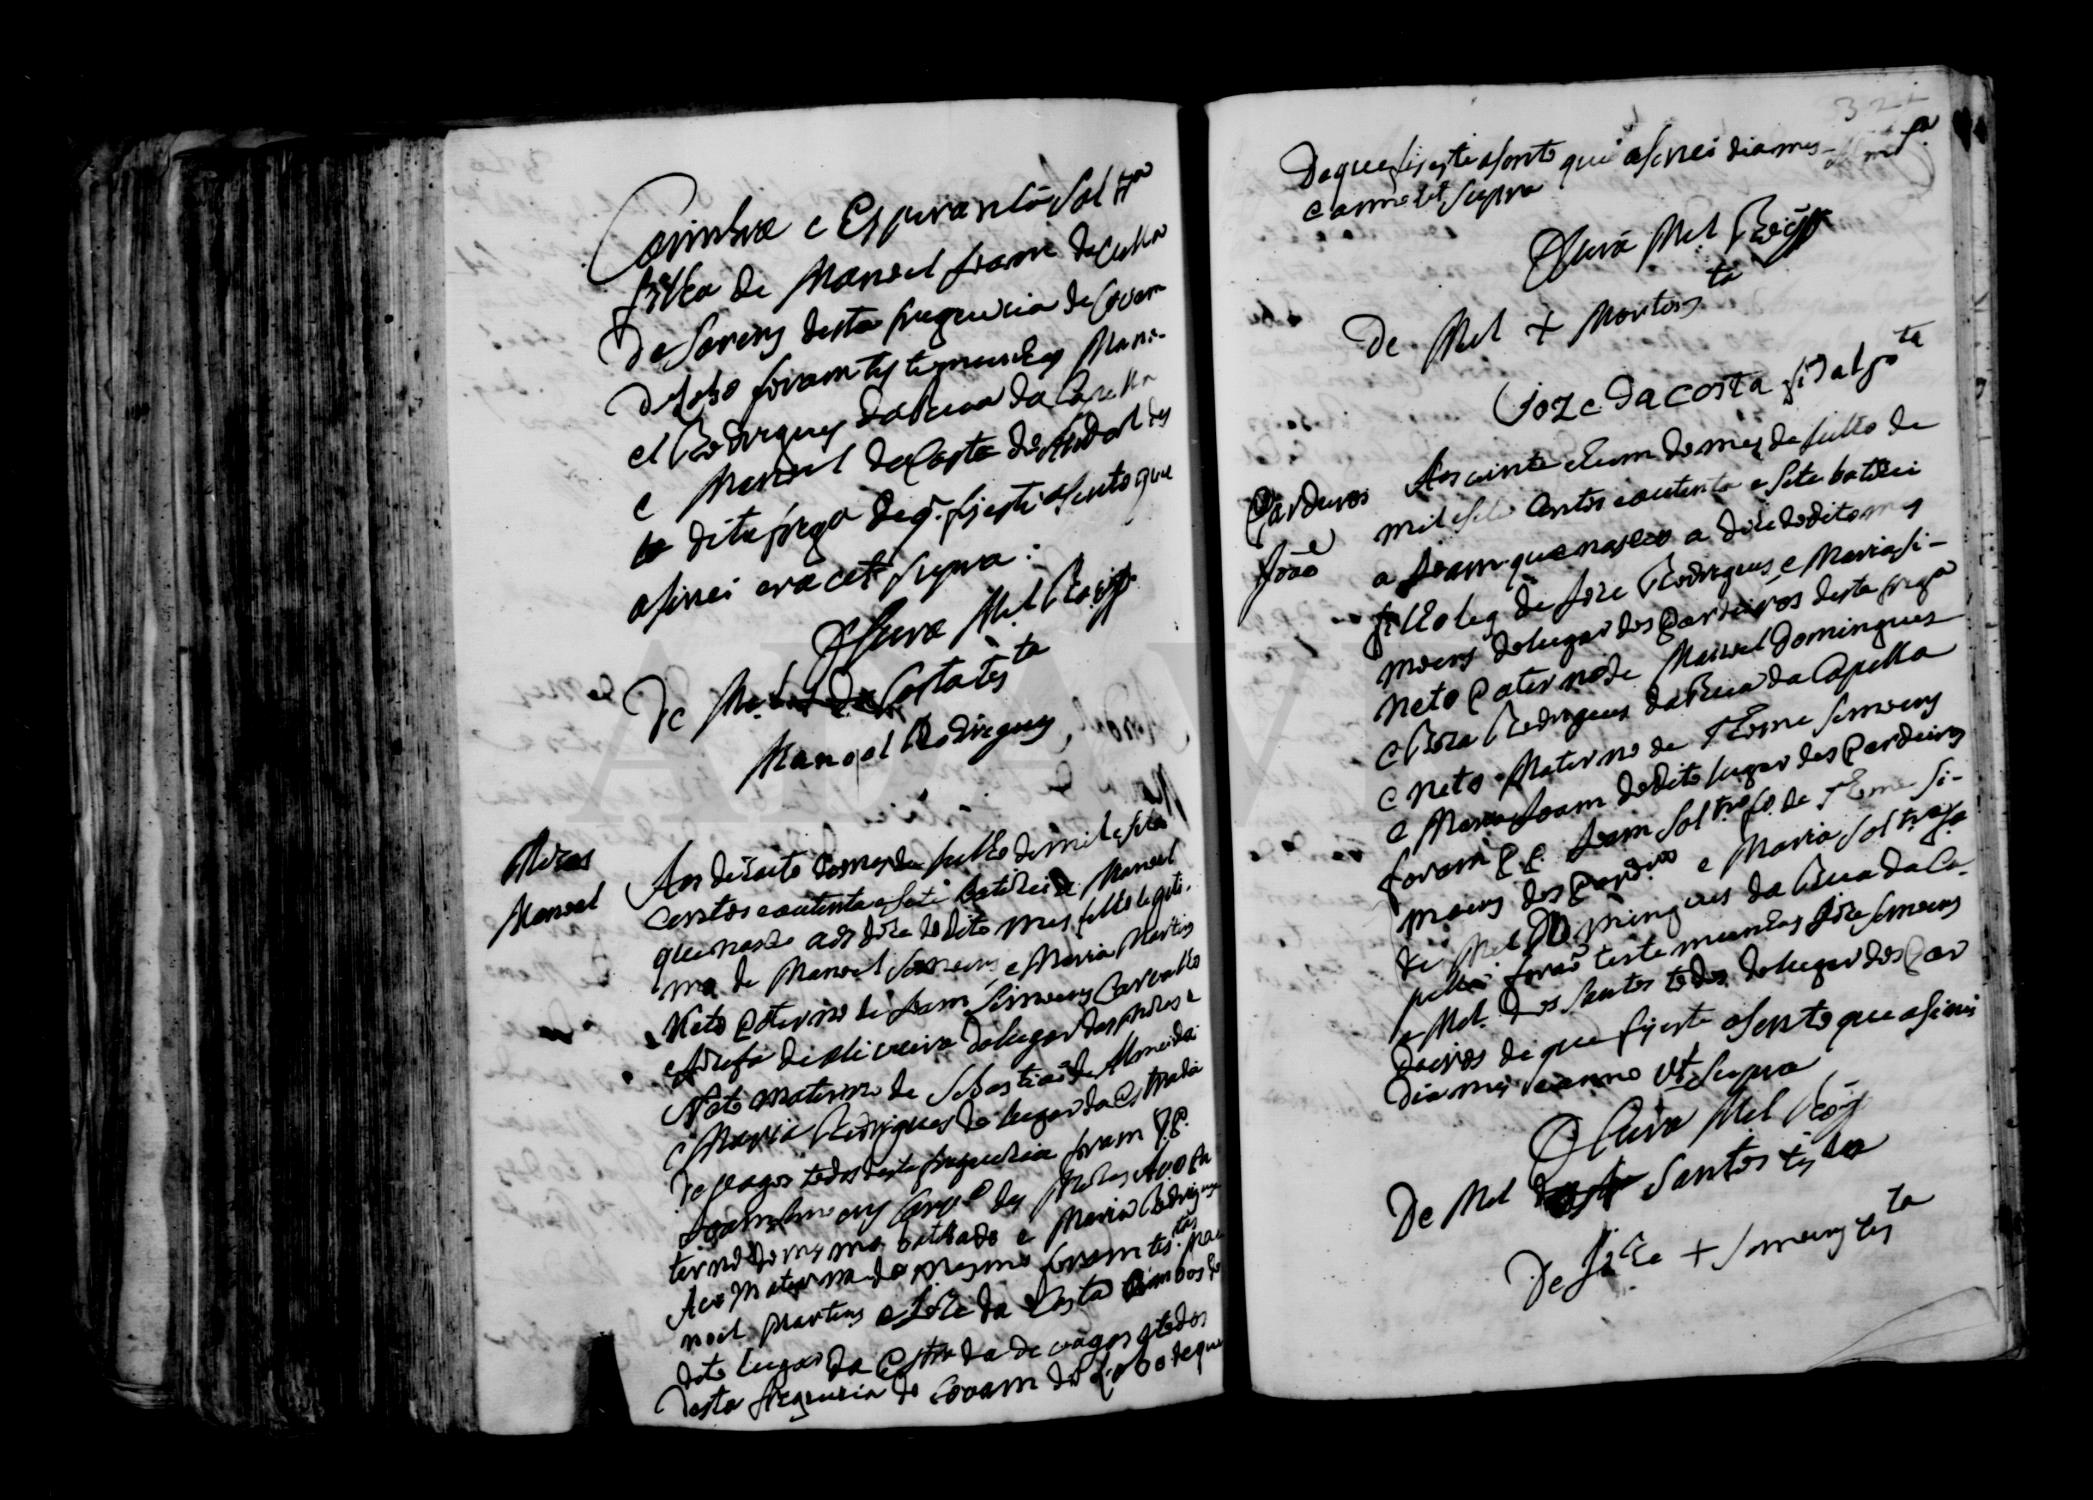 Coimbra e Esperança Soltra
filha de Manoel Joam da Culla
de Sorens desta freguezia de Covam
do Lobo foram testemunhas Mano-
el Rodrigues da Rua da Capella
e Manoel da Costa do Andal tes
ta dita frega de q. fis este asento que
asinei era ut supra:
O Cura Mel Roiz
De Mel da Costa testa
Manoel Rodrigues
Moias
Manoel
Aos dezaito do mes de Julho de mil e sete
centos e outenta e sete batizei a Manoel
que nasco aos doze do dito mes filho legiti-
mo de Manoel Simoens e Maria Martins
Neto Paterno de Joam Simoens Carvalho
e Josefa de oliveira do lugar das Moias e
Neto materno de Sebastiaõ de Almeida
e Maria Rodrigues do lugar da Estrada
de Vagos todos desta freguezia foram P.P.
Joam Simoens Carvo das Moias Avo Pa
terno do mesmo batizado e Maria Rodrigues
Avo Materna do mesmo foram testas Ma
noel Martins e Joze da Costa ambos do
dito lugar da Estrada de vagos e todos
desta freguezia de Covam do Lobo de que
321
De que fis este asento que asinei dia mes
e anno ut supra
O Cura Mel Roiz
De Mel + Martins ta
Joze da costa fidalgo ta
Cardeiros
João
Aos vinte e hum do mes de Julho de
mil e sete Centos e outenta e sete batizei
a Joam que nasceo a doze do dito mes
filho leg de Joze Rodrigues e Maria Si-
moens do lugar dos Cardeiros desta frega
Neto Paterno de Manoel Domingues
e Roza Rodrigues da Rua da Capella
e Neto Materno de Thome Simoens
e Maria Joam do dito lugar dos Cardeiros
foram P.P. Joam Soltro fo de Thome Si-
moens dos Cardros e Maria Soltra fa
de Mel Domingues da Rua da Ca-
pella foraõ testemunhas Joze Simoens
e Mel dos Santos todos do lugar dos Car
deiros de que fis este asento que asinei
dia mes e anno ut supra
O Cura Mel Roiz
De Mel dos Santos testa
De Joze + Simoens testa